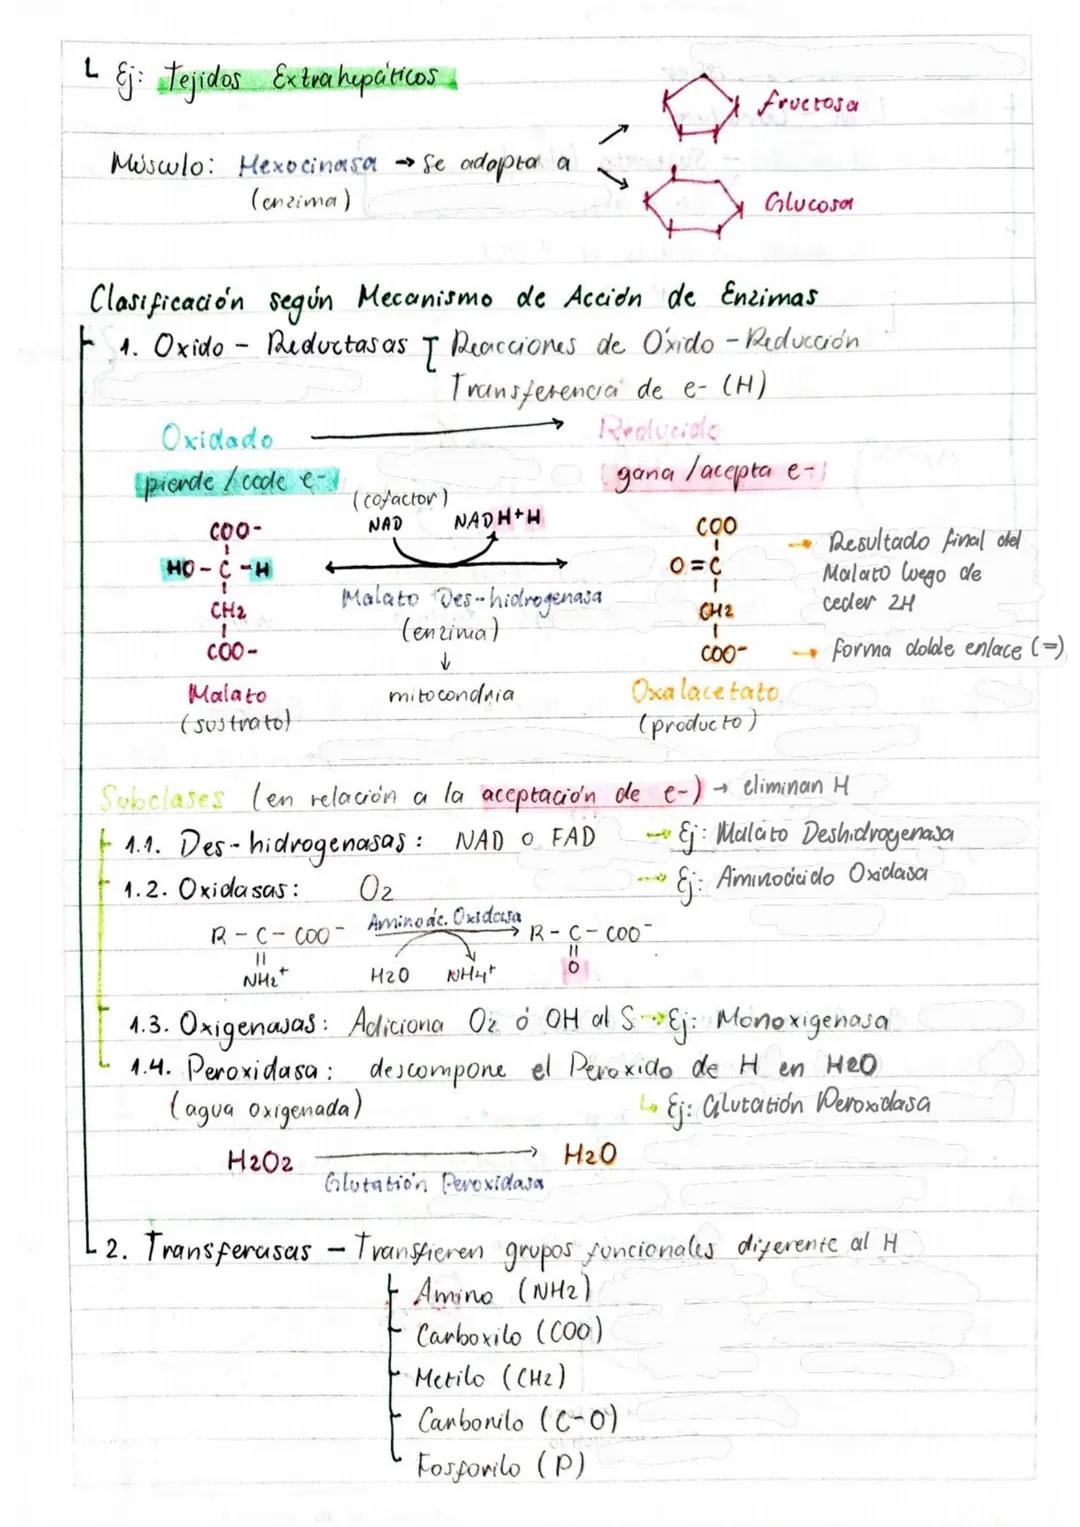 Ej: Tejidos Extrahepáticos
fructosa
Músculo: Hexocinasa → Se adapta a
(enzima)
Glucosa
Clasificación según Mecanismo de Acción de Enzimas
1. Oxido - Reductasas Reacciones de Óxido - Reducción
Transferencia de e- (H)
Oxidado → Reducido
pierde / cede e- gana / acepta e-
(cofactor)
NAD NADH+H
COO- COO
HO - C - H O = C
CH2 CH2
COO- COO-
Malato Des-hidrogenasa
(enzima)
↓
mitocondria
→ Resultado final del
Malato luego de
ceder 2H
→ forma doble enlace (=)
Malato Oxalacetato
(sustrato) (producto)
Subclases (en relación a la aceptación de e-) → eliminan H
1.1. Des-hidrogenasas: NAD o FAD → Ej: Malato Deshidrogenasa
1.2. Oxidasas: O2 → Ej: Aminoácido Oxidasa
R - C - COO- Aminoác. Oxidasa → R - C - COO-
NH2+ H2O NH4+ O
1.3. Oxigenasas: Adiciona O2 ó OH al S → Ej: Monoxigenasa
1.4. Peroxidasa: descompone el Peroxido de H en H2O
(agua oxigenada) ↳ Ej: Glutatión Peroxidasa
H2O2 → H2O
Glutatión Peroxidasa
2. Transferasas - Transfieren grupos funcionales diferente al H
Amino (NH2)
Carboxilo (COO)
Metilo (CH2)
Carbonilo (C-O)
Fosforilo (P)